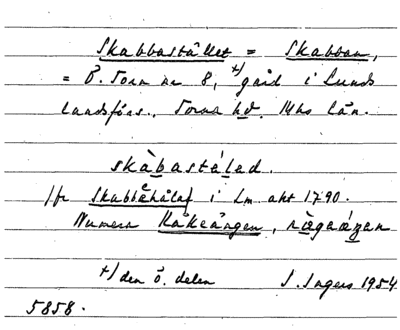 Skabbastället = Skabban,
= Ö. Torn nr 8, +) gård i Lunds
landsförs., Torna hd. Mhs län.
skàbastä́led.
Jfr Skabbehålaf i Lm. akt 1790.
Numera Råkeängen,
+) den ö. delen I. Ingers 1954
5858.